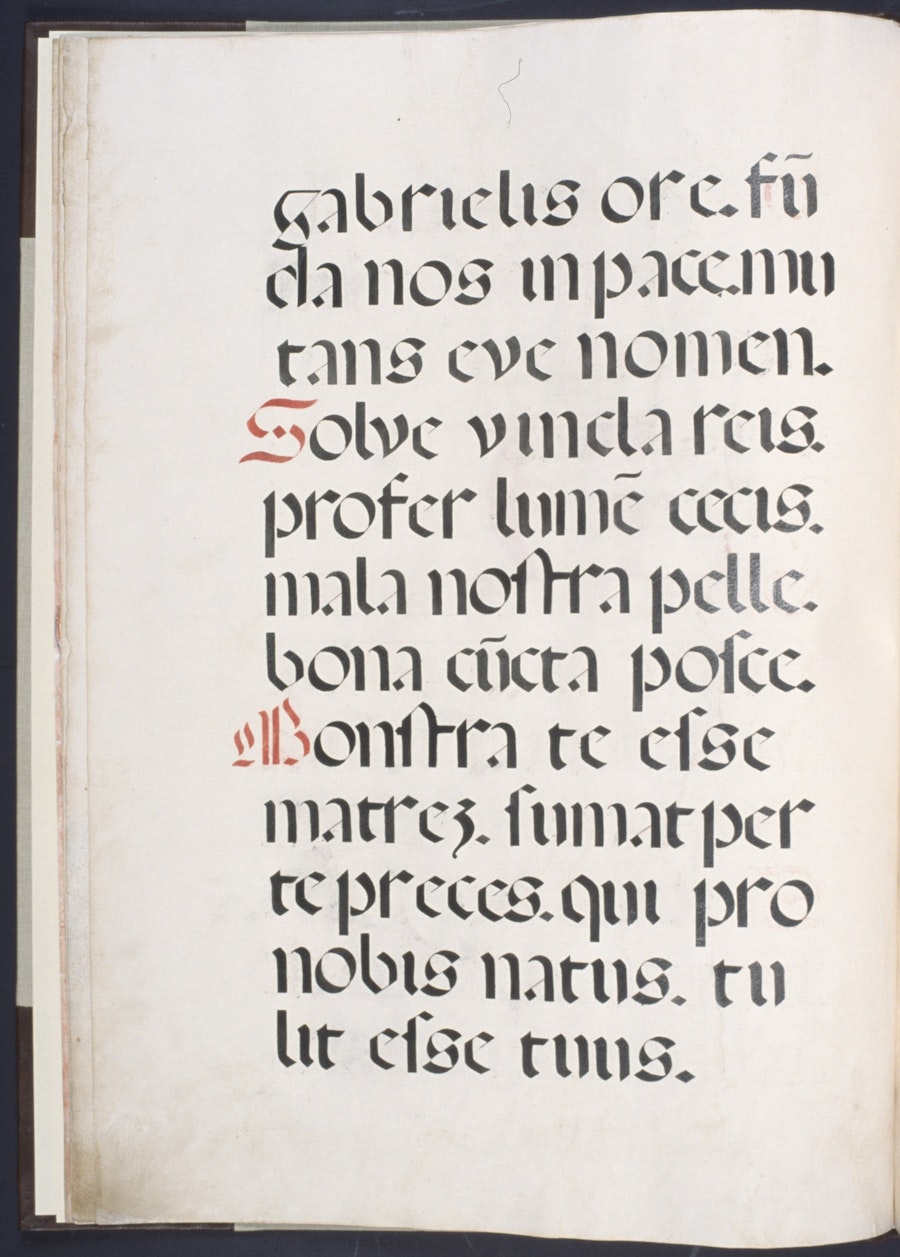 gabrielis ore. fū
da nos in pace. mu
tans eve nomen.
Solve vincla reis.
profer lumē cecis.
mala noſtra pelle.
bona cūcta poſce.
Monſtra te eſse
matreꝫ. ſumat per
te preces. qui pro
nobis natus. tu
lit eſse tuus.